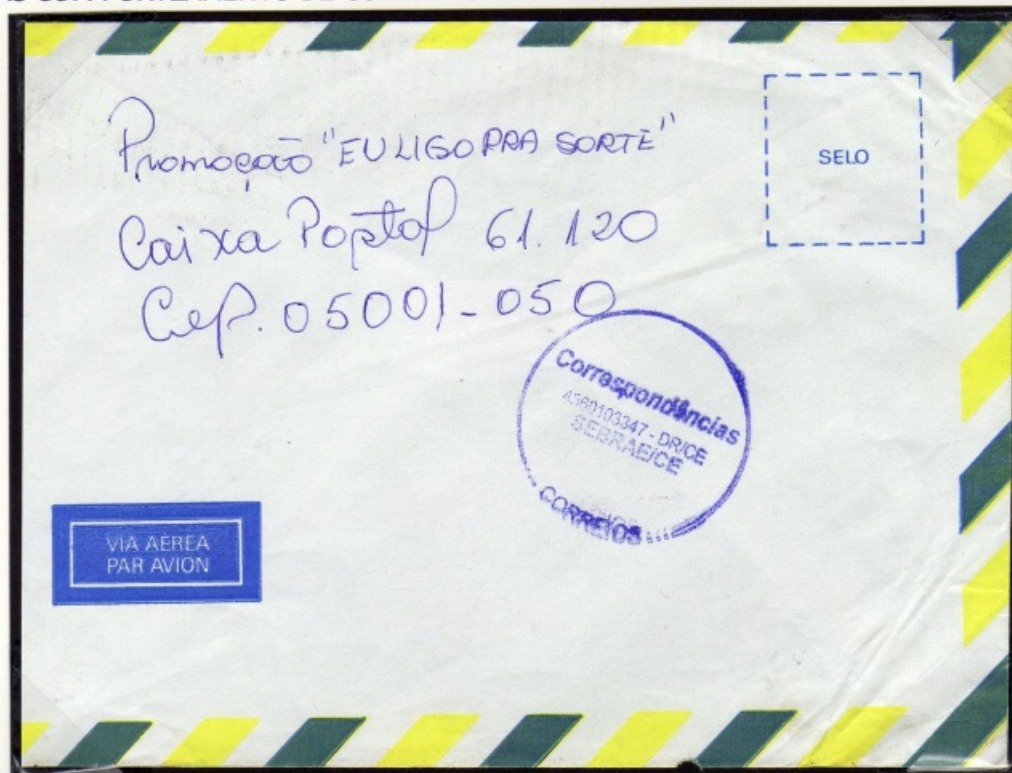 Promoção "EU LIGO PRA SORTE"
SELO
Caixa Postal 61.120
Cep. 05001-050
Correspondências
4560103347 - DR/CE
SEBRAE/CE
CORREIOS
VIA AÉREA
PAR AVION